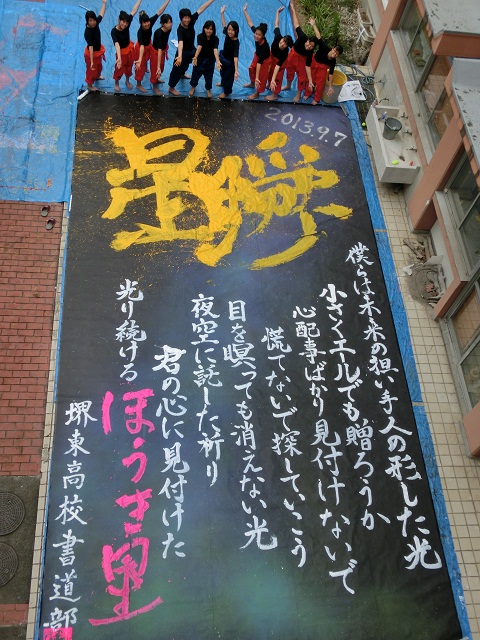 2013.9.7
瞬星
僕らは未来の担い手人の形した光
小さくエールでも贈ろうか
心配事ばかり見付けないで
慌てないで探していこう
目を瞑っても消えない光
夜空に託した祈り
君の心に見付けた
光り続けるほうき星
堺東高校書道部